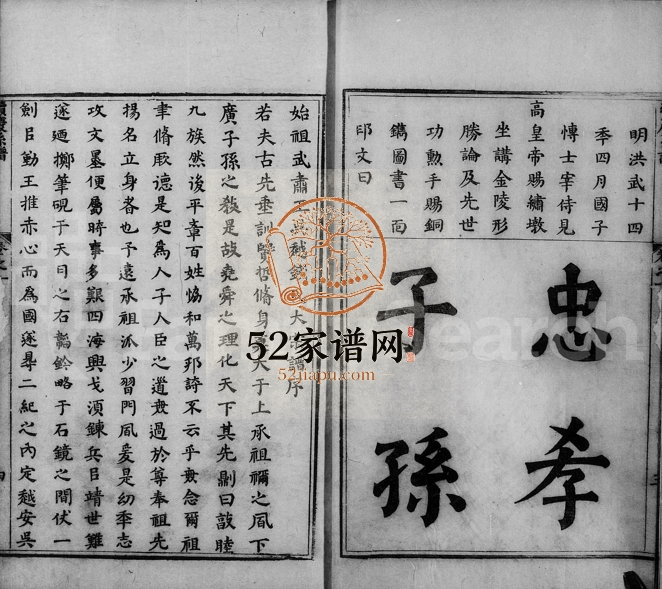 明洪武十四
季四月國子
愽士宰侍見
高皇帝賜繡墩
坐講金陵形
勝論及先世
功勲手賜銅
鐫圖書一面
印文曰
忠孝
子孫
始祖武肅王吳越錢大宗譜序
若夫古先垂訓賢哲脩身大于上承祖禰之風下
廣子孫之教是故堯舜之理化天下其先劓曰敦睦
九族然後平章百姓恊和萬邦詩不云乎毋念爾祖
聿脩厥德是知為人子人臣之道莫過於尊奉祖先
揚名立身者也予遠承祖派少習門風爰是幼季志
攻文墨便屬時事多艱四海興戈湏鍊兵㠯靖世難
遂廼擲筆硯于天目之右韜鈐略于石鏡之間伏一
劍㠯勤王推赤心而為國遂淂二紀之內定越安吳
四
三
52家谱网
52jiapu.com